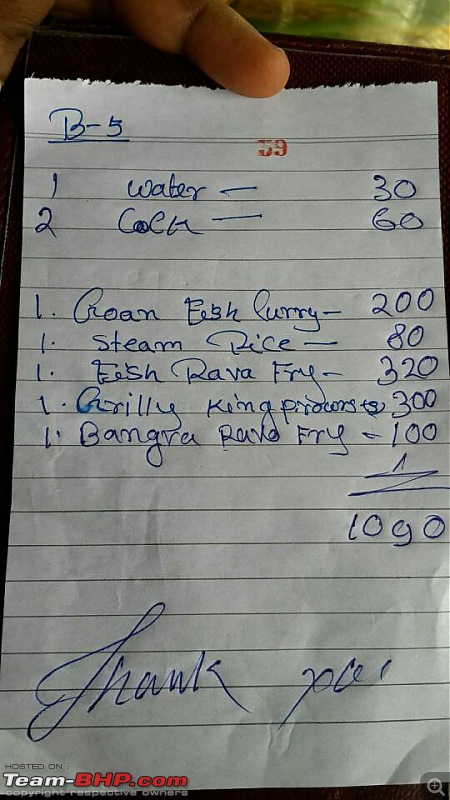 B-5
59
1 Water — 30
2 Cock — 60
1. Goan Fish Curry - 200
1. Steam Rice — 80
1. Fish Rava Fry - 320
1. Grilly King prowns 300
1. Bangra Rava Fry - 100
1090
Thank you
HOSTED ON :
Team-BHP.com
copyright respective owners